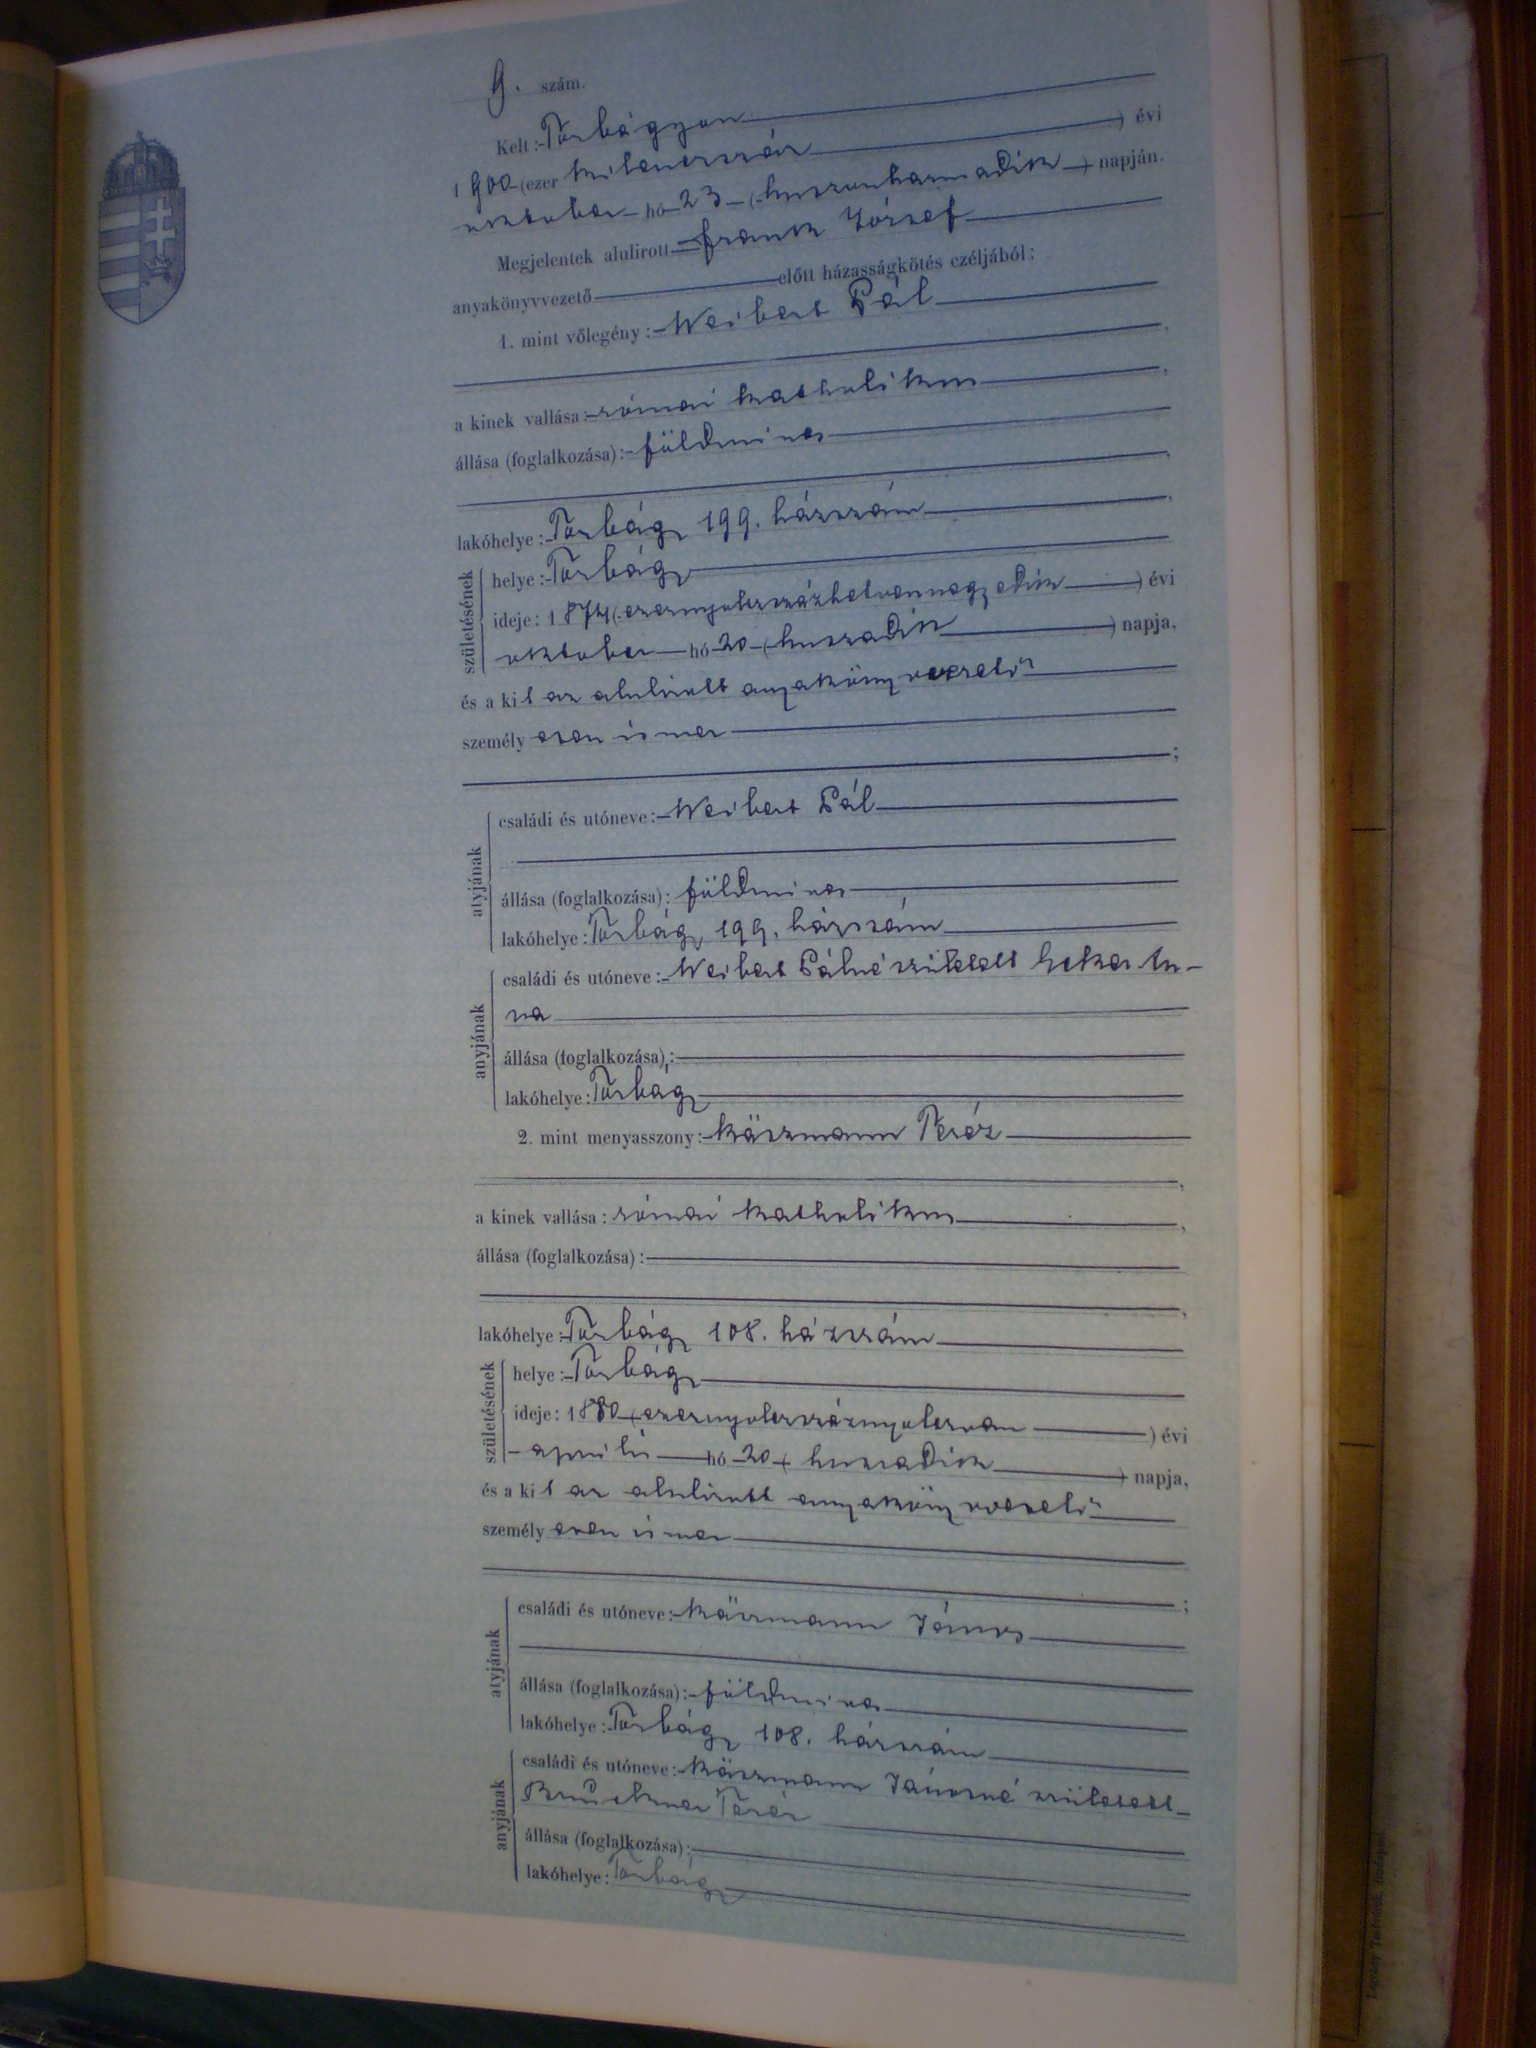 9. szám.
Kelt: Torbágyon
1900 (ezer kilenczszáz) évi
oktober hó 23 (huszonharmadik) napján.
Megjelentek alulirott Franck József
anyakönyvvezető előtt házasságkötés czéljából:
1. mint vőlegény: Weibert Pál
a kinek vallása: római katholikus,
állása (foglalkozása): földmives
lakóhelye: Torbágy 199. házszám,
születésének
helye: Torbágy
ideje: 1874 (ezernyolczszázhetvennegyedik) évi
oktober hó 20 (huszadik) napja,
és a kit az alulirott anyakönyvvezető
személyesen ismer
;
atyjának
családi és utóneve: Weibert Pál
állása (foglalkozása): földmives
lakóhelye: Torbágy 199. házszám
anyjának
családi és utóneve: Weibert Pálné született
na
állása (foglalkozása):
lakóhelye: Torbágy
2. mint menyasszony: Käszmann Teréz
,
a kinek vallása: római katholikus,
állása (foglalkozása):
,
lakóhelye: Torbágy 108. házszám
születésének
helye: Torbágy
ideje: 1880 (ezernyolczszáznyolczvan) évi
április hó 20 (huszadik) napja,
és a kit az alulirott anyakönyvvezető
személyesen ismer
;
atyjának
családi és utóneve: Käszmann János
állása (foglalkozása): földmives
lakóhelye: Torbágy 108. házszám
anyjának
családi és utóneve: Käszmann Jánosné született
Bruckner Teréz
állása (foglalkozása):
lakóhelye: Torbágy